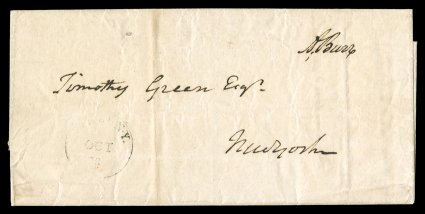 A, Burr
Timothy Green Esqr.
Newyork
OCT